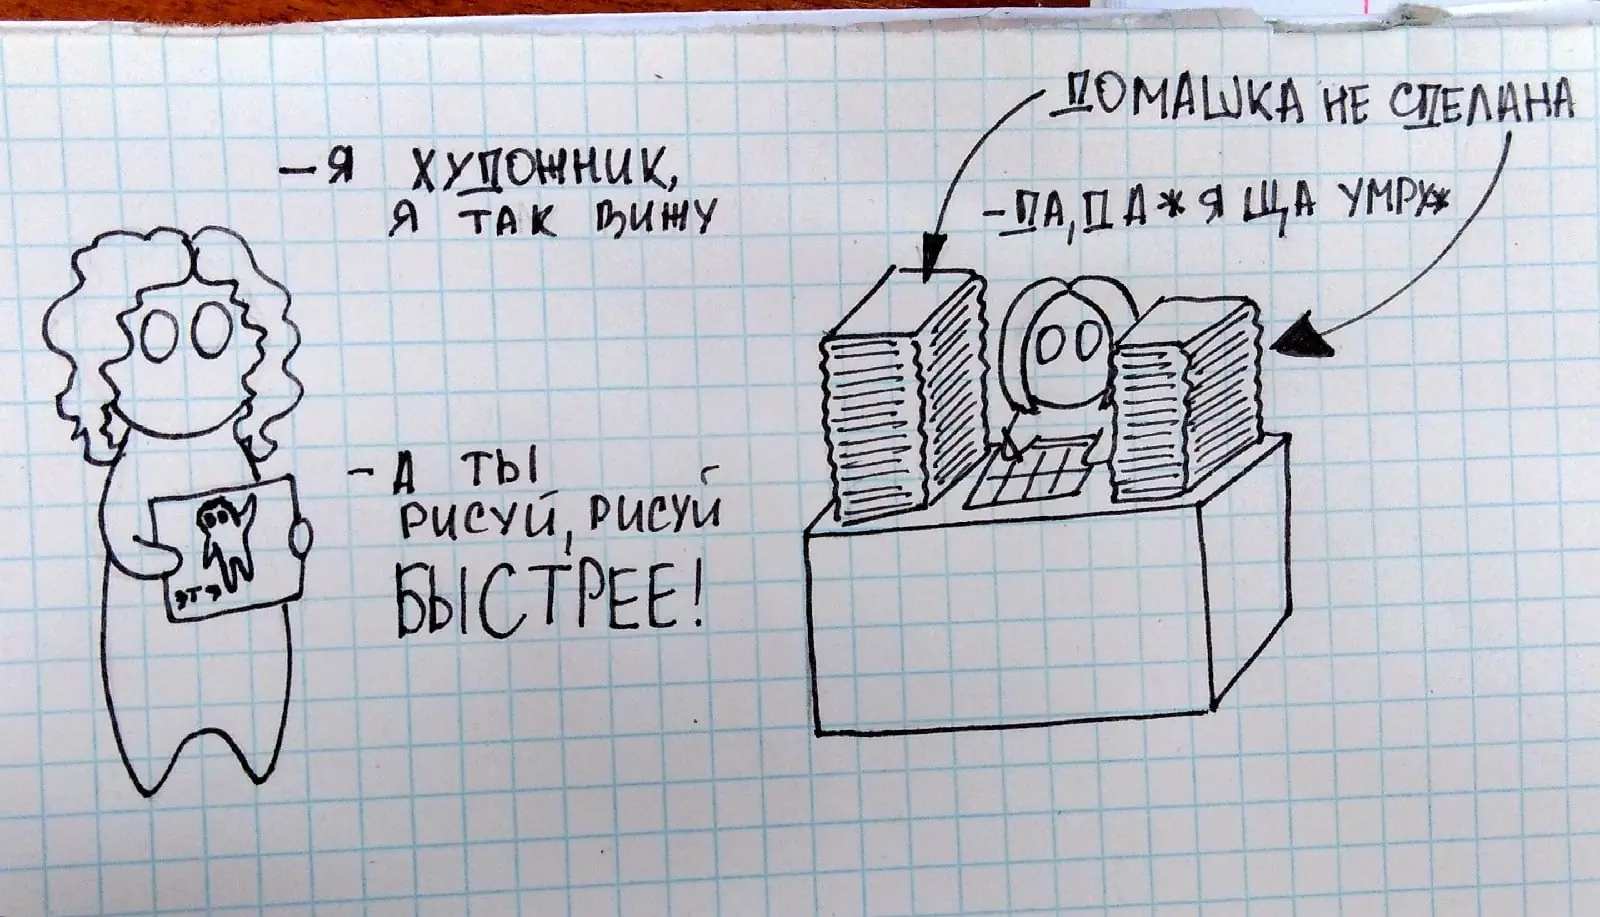 — Я ХУДОЖНИК,
Я ТАК ВИЖУ
- А ТЫ
РИСУЙ, РИСУЙ
БЫСТРЕЕ!
ЭТ Я
ДОМАШКА НЕ СДЕЛАНА
- ДА, ДА Ж Я ЩА УМРУ